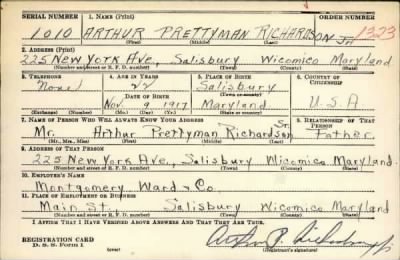 SERIAL NUMBER 1. NAME (Print) ORDER NUMBER
1010 ARTHUR PRETTYMAN RICHARDSON JR 1323
(First) (Middle) (Last)
2. ADDRESS (Print)
225 New York Ave., Salisbury Wicomico Maryland
(Number and street or R. F. D. number) (Town) (County) (State)
3. TELEPHONE 4. AGE IN YEARS 5. PLACE OF BIRTH 6. COUNTRY OF CITIZENSHIP
None 22 Salisbury
(Town or county)
DATE OF BIRTH
Nov. 9 1917 Maryland U.S.A
(Exchange) (Number) (Mo.) (Day) (Yr.) (State or country)
7. NAME OF PERSON WHO WILL ALWAYS KNOW YOUR ADDRESS 8. RELATIONSHIP OF THAT PERSON
Mr. Arthur Prettyman Richardson Sr. Father
(Mr., Mrs., Miss) (First) (Middle) (Last)
9. ADDRESS OF THAT PERSON
225 New York Ave., Salisbury Wicomico Maryland
(Number and street or R. F. D. number) (Town) (County) (State)
10. EMPLOYER'S NAME
Montgomery Ward & Co.
11. PLACE OF EMPLOYMENT OR BUSINESS
Main St. Salisbury Wicomico Maryland
(Number and street or R. F. D. number) (Town) (County) (State)
I AFFIRM THAT I HAVE VERIFIED ABOVE ANSWERS AND THAT THEY ARE TRUE.
REGISTRATION CARD
D. S. S. Form 1 (over) Arthur P. Richardson Jr.
(Registrant's signature)